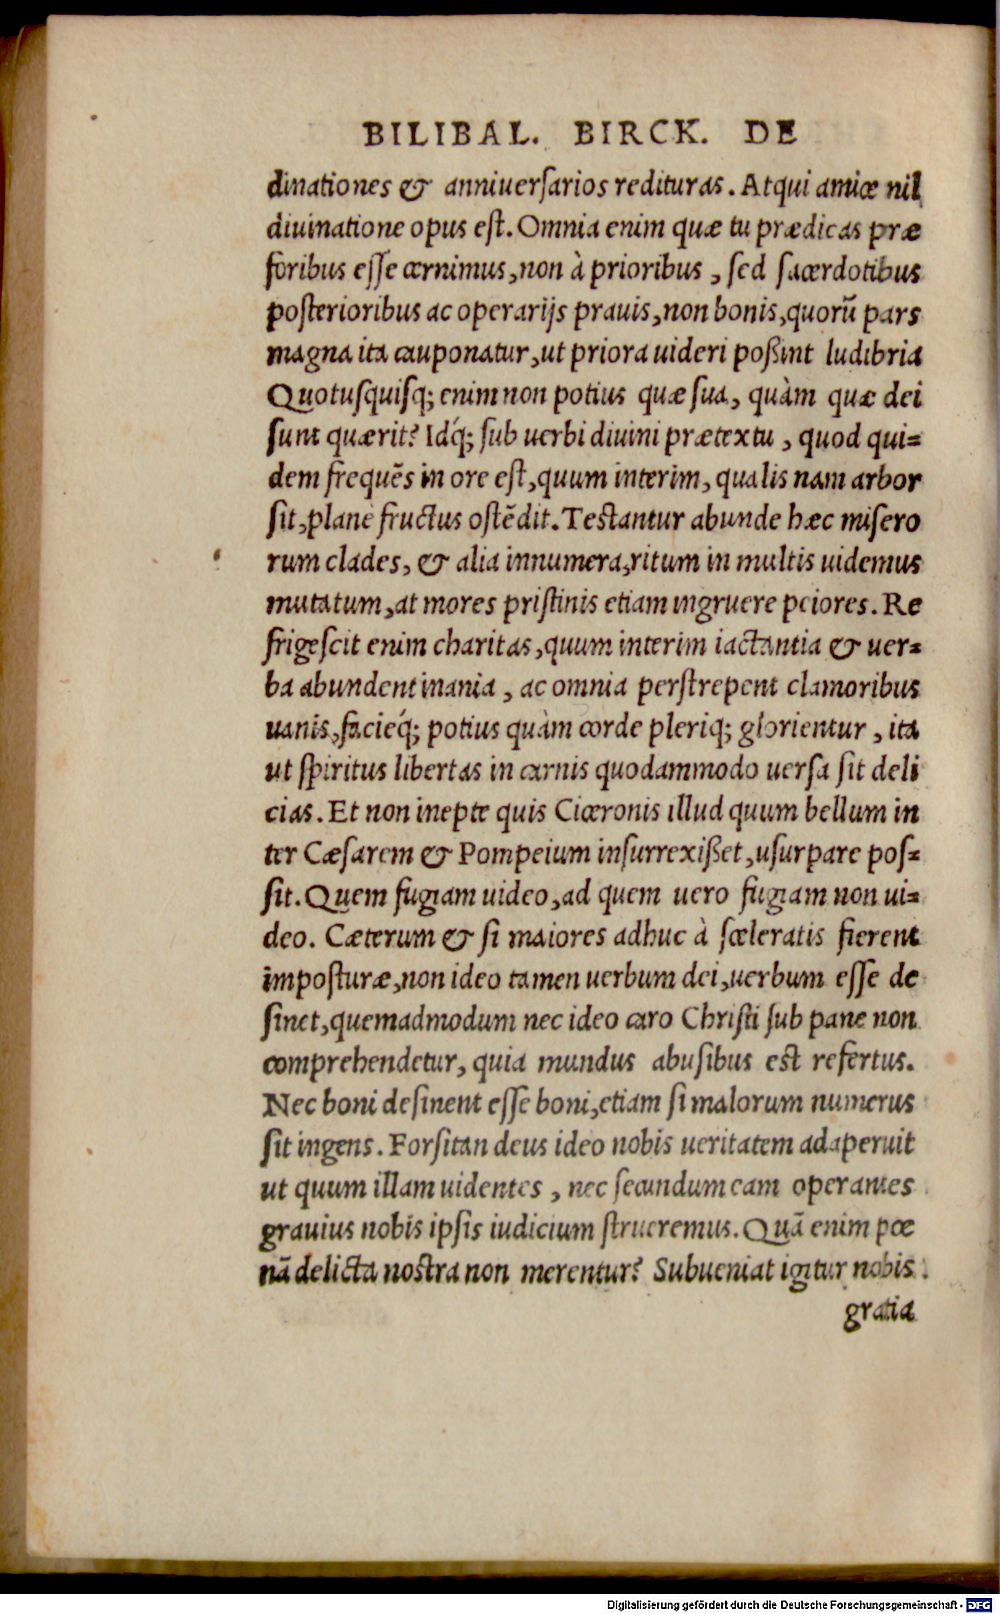 BILIBAL. BIRCK. DE
dinationes & anniuersarios redituras. Atqui amice nil
diuinatione opus est. Omnia enim quæ tu prædicas præ
foribus esse cernimus, non à prioribus, sed sacerdotibus
posterioribus ac operarijs prauis, non bonis, quorũ pars
magna ita cauponatur, ut priora uideri poßint ludibria
Quotusquisq; enim non potius quæ sua, quàm quæ dei
sunt quærit? Idq́; sub uerbi diuini prætextu, quod qui=
dem frequẽs in ore est, quum interim, qualis nam arbor
sit, plane fructus ostẽdit. Testantur abunde hæc misero
rum clades, & alia innumera, ritum in multis uidemus
mutatum, at mores pristinis etiam ingruere peiores. Re
frigescit enim charitas, quum interim iactantia & uer=
ba abundent inania, ac omnia perstrepent clamoribus
uanis, facieq́; potius quàm corde pleriq; glorientur, ita
ut spiritus libertas in carnis quodammodo uersa sit deli
cias. Et non inepte quis Ciceronis illud quum bellum in
ter Cæsarem & Pompeium insurrexißet, usurpare pos=
sit. Quem fugiam uideo, ad quem uero fugiam non ui=
deo. Cæterum & si maiores adhuc à sceleratis fierent
imposturæ, non ideo tamen uerbum dei, uerbum esse de
sinet, quemadmodum nec ideo caro Christi sub pane non
comprehendetur, quia mundus abusibus est refertus.
Nec boni desinent esse boni, etiam si malorum numerus
sit ingens. Forsitan deus ideo nobis ueritatem adaperuit
ut quum illam uidentes, nec secundum eam operantes
grauius nobis ipsis iudicium strueremus. Quã enim pœ
nã delicta nostra non merentur? Subueniat igitur nobis
gratia
Digitalisierung gefördert durch die Deutsche Forschungsgemeinschaft - DFG